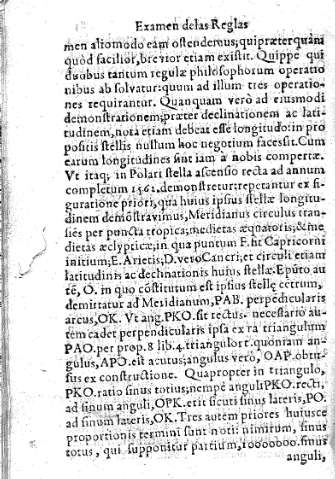 Examen delas Reglas
men aliomodo eam ostendemus; qui præter quàm
quòd facilior, brevior etiam existit. Quippe qui
duobus tantum regulæ philosophorum operatio
nibus absolvatur: quum ad illum tres operatio-
nes requirantur. Quanquam verò ad eiusmodi
demonstrationem, præter declinationem ac lati-
tudinem, nota etiam debeat esse longitudo: in pro
positis stellis nullum hoc negotium facessit. Cum
earum longitudines sint iam à nobis compertæ.
Vt itaq; in Polari stella ascensio recta ad annum
completum 1561. demonstretur: repetantur ex fi-
guratione priori, qua huius ipsius stellæ longitu-
dinem demõstravimus, Meridianus circulus tran-
siẽs per puncta tropica; medietas æquatoris; & me
dietas æclypticæ, in qua punctum F. fit Capricorni
initium; E. Arietis; D. vero Cancri; et circuli etiam
latitudinis ac declinationis huius stellæ. E pũto au
tẽ, O. in quo cõstitutum est ipsius stellę cẽtrum,
demittatur ad Meridianum, PAB. perpẽdicularis
arcus, OK. Vt ang. PKO. sit rectus. necessario au-
tem cadet perpendicularis ipsa extra triangulum
PAO. per prop. 8 lib. 4. triangulorũ. quoniam an-
gulus, APO. est acutus; angulus verò, OAP. obtu-
sus ex constructione. Quapropter in triangulo,
PKO. ratio sinus totius; nempè anguli PKO. recti,
ad sinum anguli, OPK. erit sicuti sinus lateris, PO.
ad sinum lateris, OK. Tres autem priores huiusce
proportionis termini sunt noti: nimirum, sinus
totus, qui supponitur partium, 10000000. sinus
anguli,